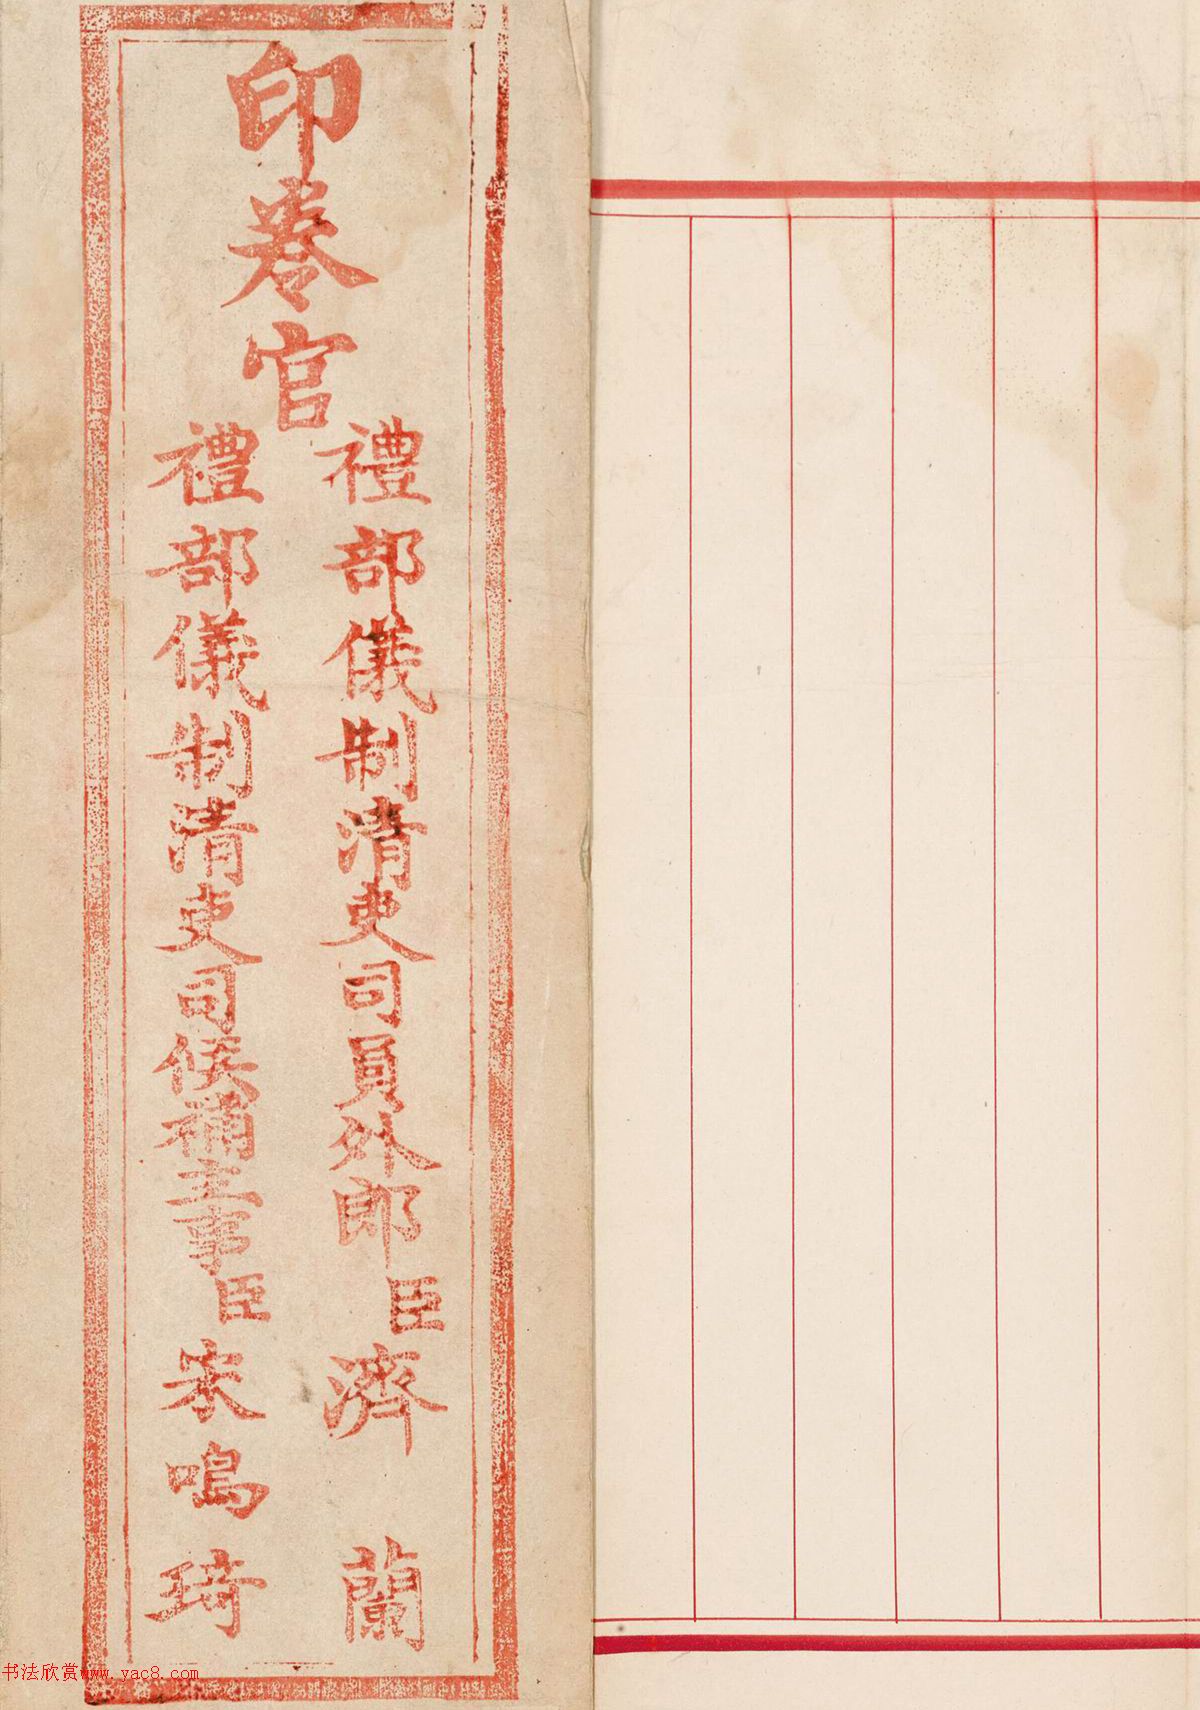 印卷官
禮部儀制清吏司員外郎臣濟蘭
禮部儀制清吏司候補主事臣宋鳴琦
书法欣赏www.yac8.com